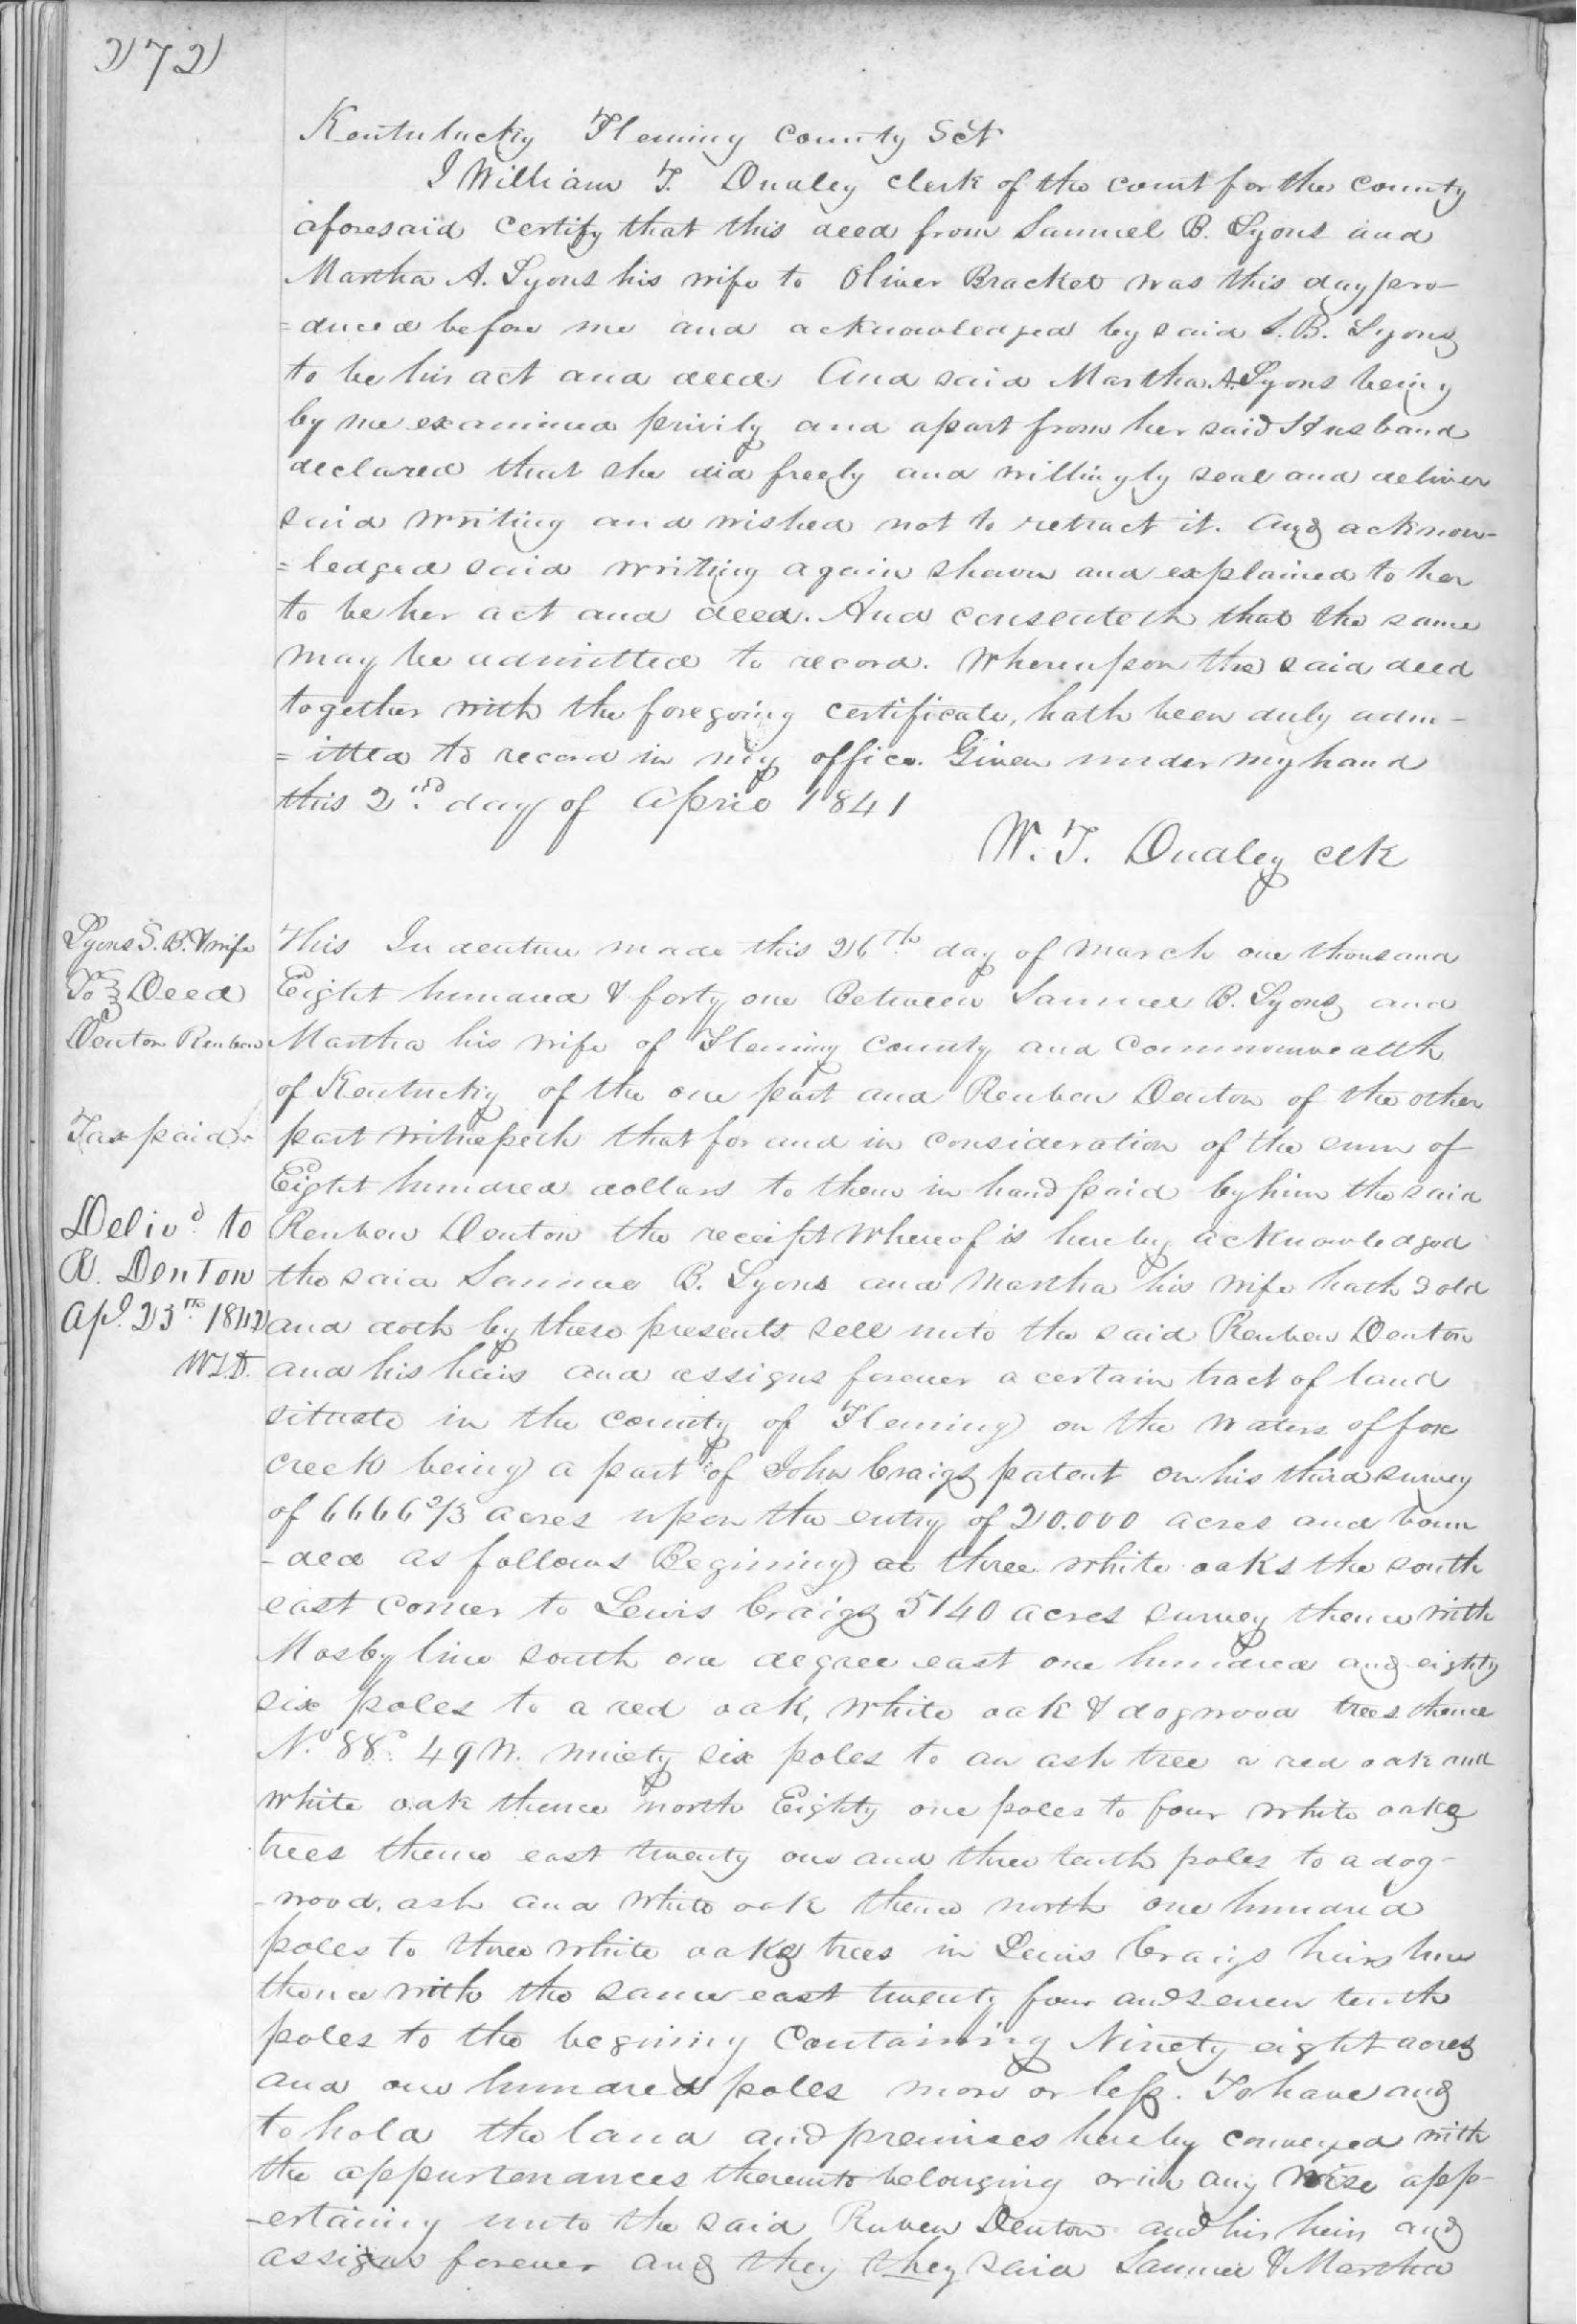 272
Kentulucky Fleming County Sct
I William T. Dudley clerk of the court for the county
aforesaid certify that this deed from Samuel B. Lyons and
Martha A. Lyons his wife to Oliver Bracket was this day pro-
=duced before me and acknowledged by said S. B. Lyons
to be his act and deed. And said Martha A. Lyons being
by me examined privily and apart from her said Husband
declared that she did freely and willingly seal and deliver
said writing and wished not to retract it. And acknow-
=ledged said writing again shewn and explained to her
to be her act and deed. And consenteth that the same
may be admitted to record. Whereupon the said deed
together with the foregoing certificate, hath been duly adm-
=itted to record in my office. Given under my hand
this 2nd day of April 1841
W. T. Dudley clk
Lyons S. B. & wife
To } Deed
Denton Reuben
Tax paid.
Delivd to
R. Denton
Apl. 23rd 1842
WTD.
This Indenture made this 26th day of March one thousand
Eight hundred & forty one Between Samuel B. Lyons and
Martha his wife of Fleming County and Commonwealth
of Kentucky of the one part and Reuben Denton of the other
part witnesseth that for and in consideration of the sum of
Eight hundred dollars to them in hand paid by him the said
Reuben Denton the receipt whereof is hereby acknowledged
the said Samuel B. Lyons and Martha his wife hath sold
and doth by these presents sell unto the said Reuben Denton
and his heirs and assigns forever a certain tract of land
situate in the county of Fleming on the waters of fox
creek being a part of John Craigs patent on his third survey
of 6666 2/3 acres upon the entry of 20.000 acres and boun
-ded as follows Begining at three white oaks the south
east corner to Lewis Craigs 5140 acres survey thence with
Mosby line south one degree east one hundred and eighty
six poles to a red oak, white oak & dogwood trees thence
No. 88° 49 W. ninety six poles to an ash tree a red oak and
white oak thence north Eighty one poles to four white oaks
trees thence east twenty one and three tenth poles to a dog-
-wood, ash and white oak thence north one hundred
poles to three white oaks trees in Lewis Craigs heirs line
thence with the same east twenty four and seven tenth
poles to the begining Containing Ninety eight acres
and one hundred poles more or less. To have and
to hold the land and premises hereby conveyed with
the appurtenances thereunto belonging or in any wise app-
-ertaining unto the said Ruben Denton and his heirs and
assigns forever and they they said Samuel & Martha